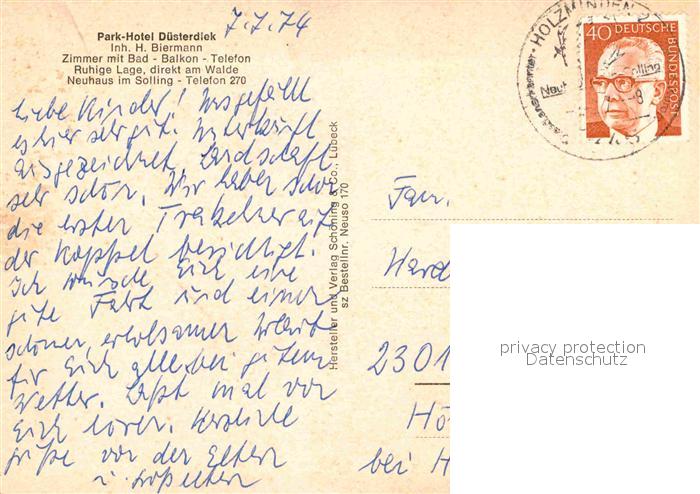 7.7.74
Park-Hotel Düsterdiek
Inh. H. Biermann
Zimmer mit Bad - Balkon - Telefon
Ruhige Lage, direkt am Walde
Neuhaus im Solling - Telefon 270
Liebe Kinder! Uns gefällt
es hier sehr gut. Unterkunft
ausgezeichnet, Landschaft
sehr schön. Wir haben schon
die ersten Trakehner auf
der Koppel besichtigt.
Ich wünsche Euch eine
gute Fahrt und einen
schönen, erholsamen Urlaub
für Euch alle bei gutem
Wetter. Laßt mal von
Euch hören. Herzliche
Grüße von den Eltern
u. Großeltern
Hersteller und Verlag Schöning & Co., Lübeck
sz Bestellnr. Neuso 170
HOLZMINDEN 2
Solling
40 DEUTSCHE BUNDESPOST
Fam.
Hard
2301
Hö
bei H
privacy protection
Datenschutz